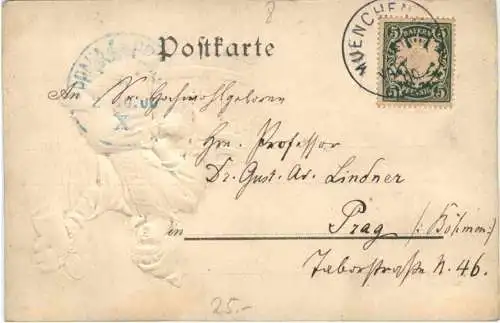 8
Postkarte
MUENCHEN
BAYERN
5 5
PFENNIG
An Sr. Hochwohlgeboren
Hrn. Professor
Dr. Gust. Ad. Lindner
in Prag (: Böhmen :)
Taborstraße N. 46.
25.-